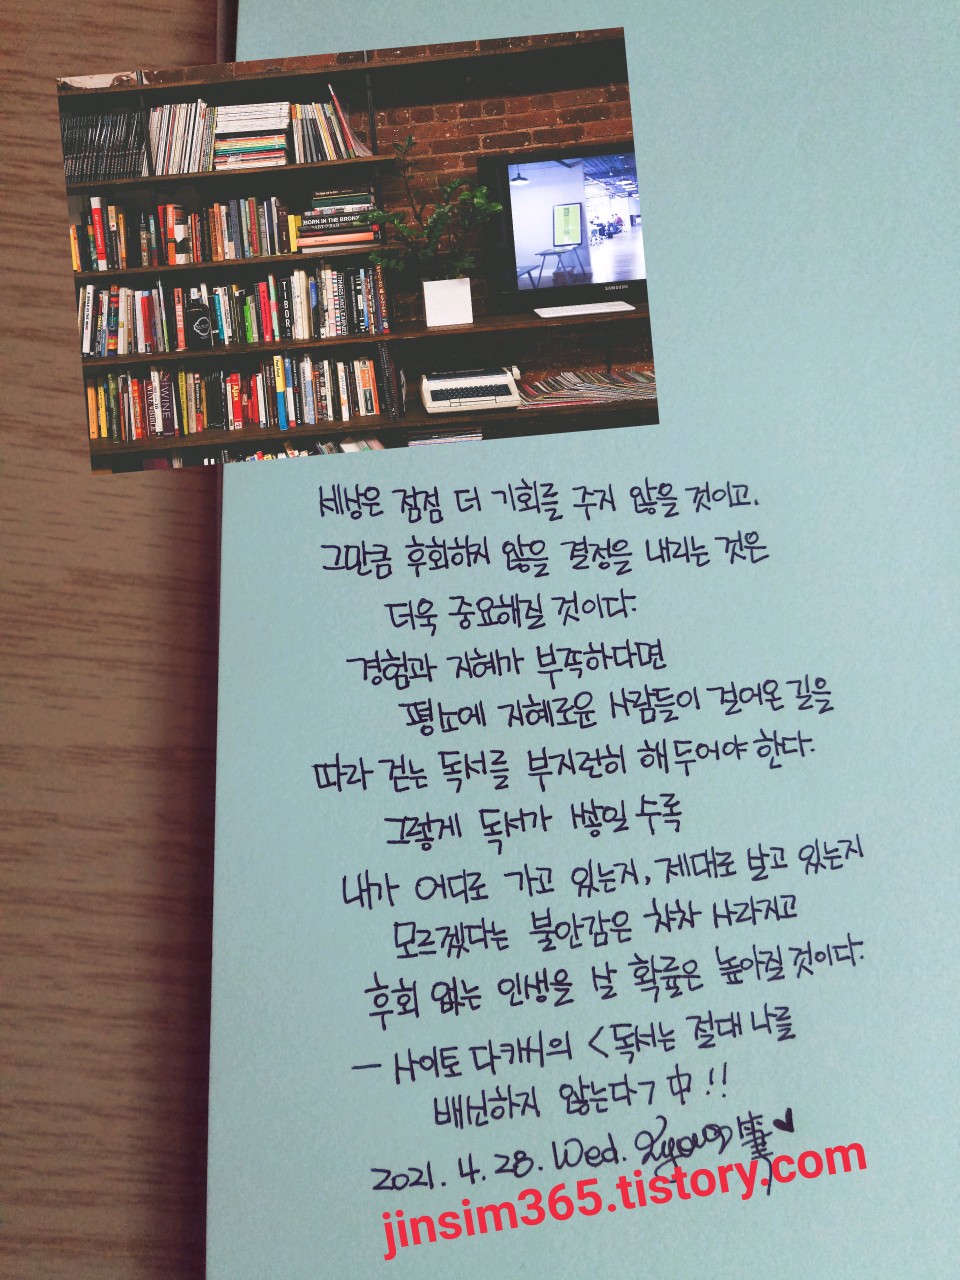 BORN IN THE BRONX
TIBOR
WINE
SAMSUNG
세상은 점점 더 기회를 주지 않을 것이고,
그만큼 후회하지 않을 결정을 내리는 것은
더욱 중요해질 것이다.
경험과 지혜가 부족하다면
평소에 지혜로운 사람들이 걸어온 길을
따라 걷는 독서를 부지런히 해 두어야 한다.
그렇게 독서가 쌓일 수록
내가 어디로 가고 있는지, 제대로 살고 있는지
모르겠다는 불안감은 차차 사라지고
후회 없는 인생을 살 확률은 높아질 것이다.
- 사이토 다카시의 <독서는 절대 나를
배신하지 않는다> 中!!
2021. 4. 28. Wed.
jinsim365.tistory.com